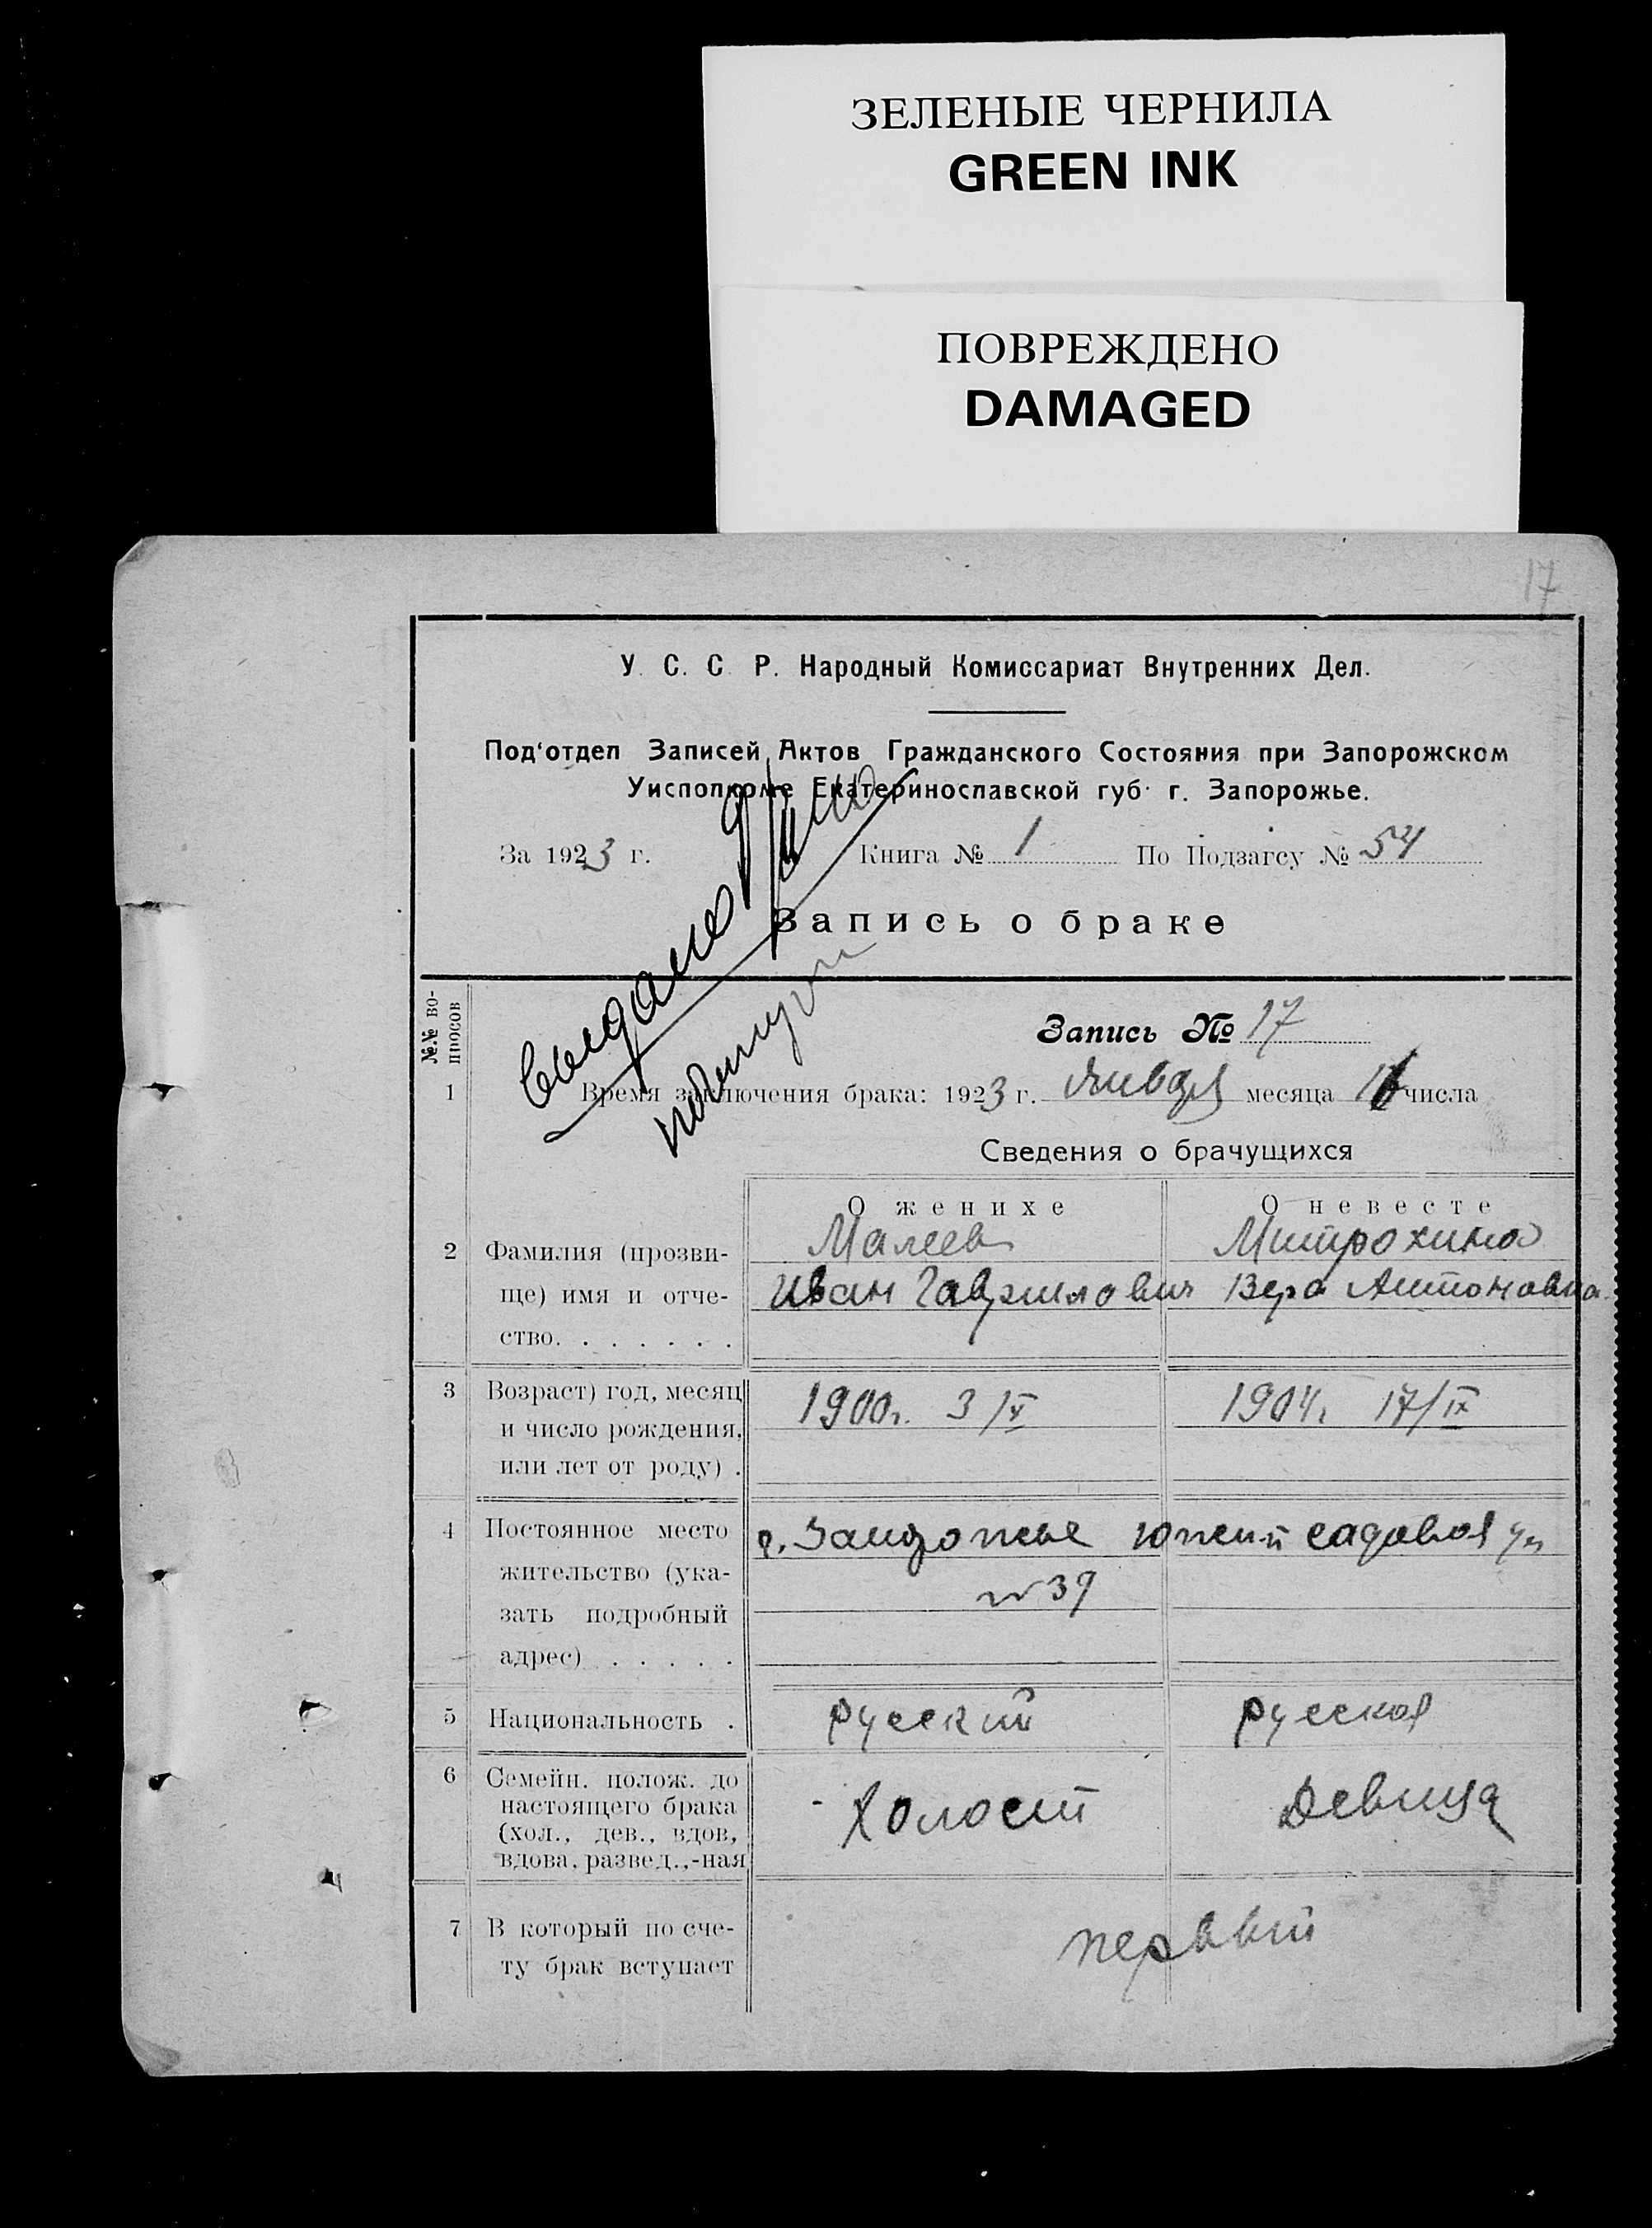 ЗЕЛЕНЫЕ ЧЕРНИЛА
GREEN INK
ПОВРЕЖДЕНО
DAMAGED
17
У. С. С. Р. Народный Комиссариат Внутренних Дел.
Под'отдел Записей Актов Гражданского Состояния при Запорожском
Уисполкоме Екатеринославской губ. г. Запорожье.
За 1923 г. Книга № 1 По Подзагсу № 54
Запись о браке
выдано
№№ во-
просов
Запись № 17
1 Время заключения брака: 1923 г. Января месяца числа
Сведения о брачущихся
О женихе О невесте
2 Фамилия (прозви-
ще) имя и отче-
ство. . . . . . .
Малеев Митрохина
Иван Гаврилович Вера Антоновна
3 Возраст) год, месяц
и число рождения,
или лет от роду) .
1900г. 3/V 1904г. 17/IX
4 Постоянное место
жительство (ука-
зать подробный
адрес) . . . . .
г. Запорожье Южний садовая ул
№ 39
5 Национальность . русский русская
6 Семейн. полож. до
настоящего брака
(хол., дев., вдов,
вдова, развед.,-ная
- Холост Девица
7 В который по сче-
ту брак вступает
первый